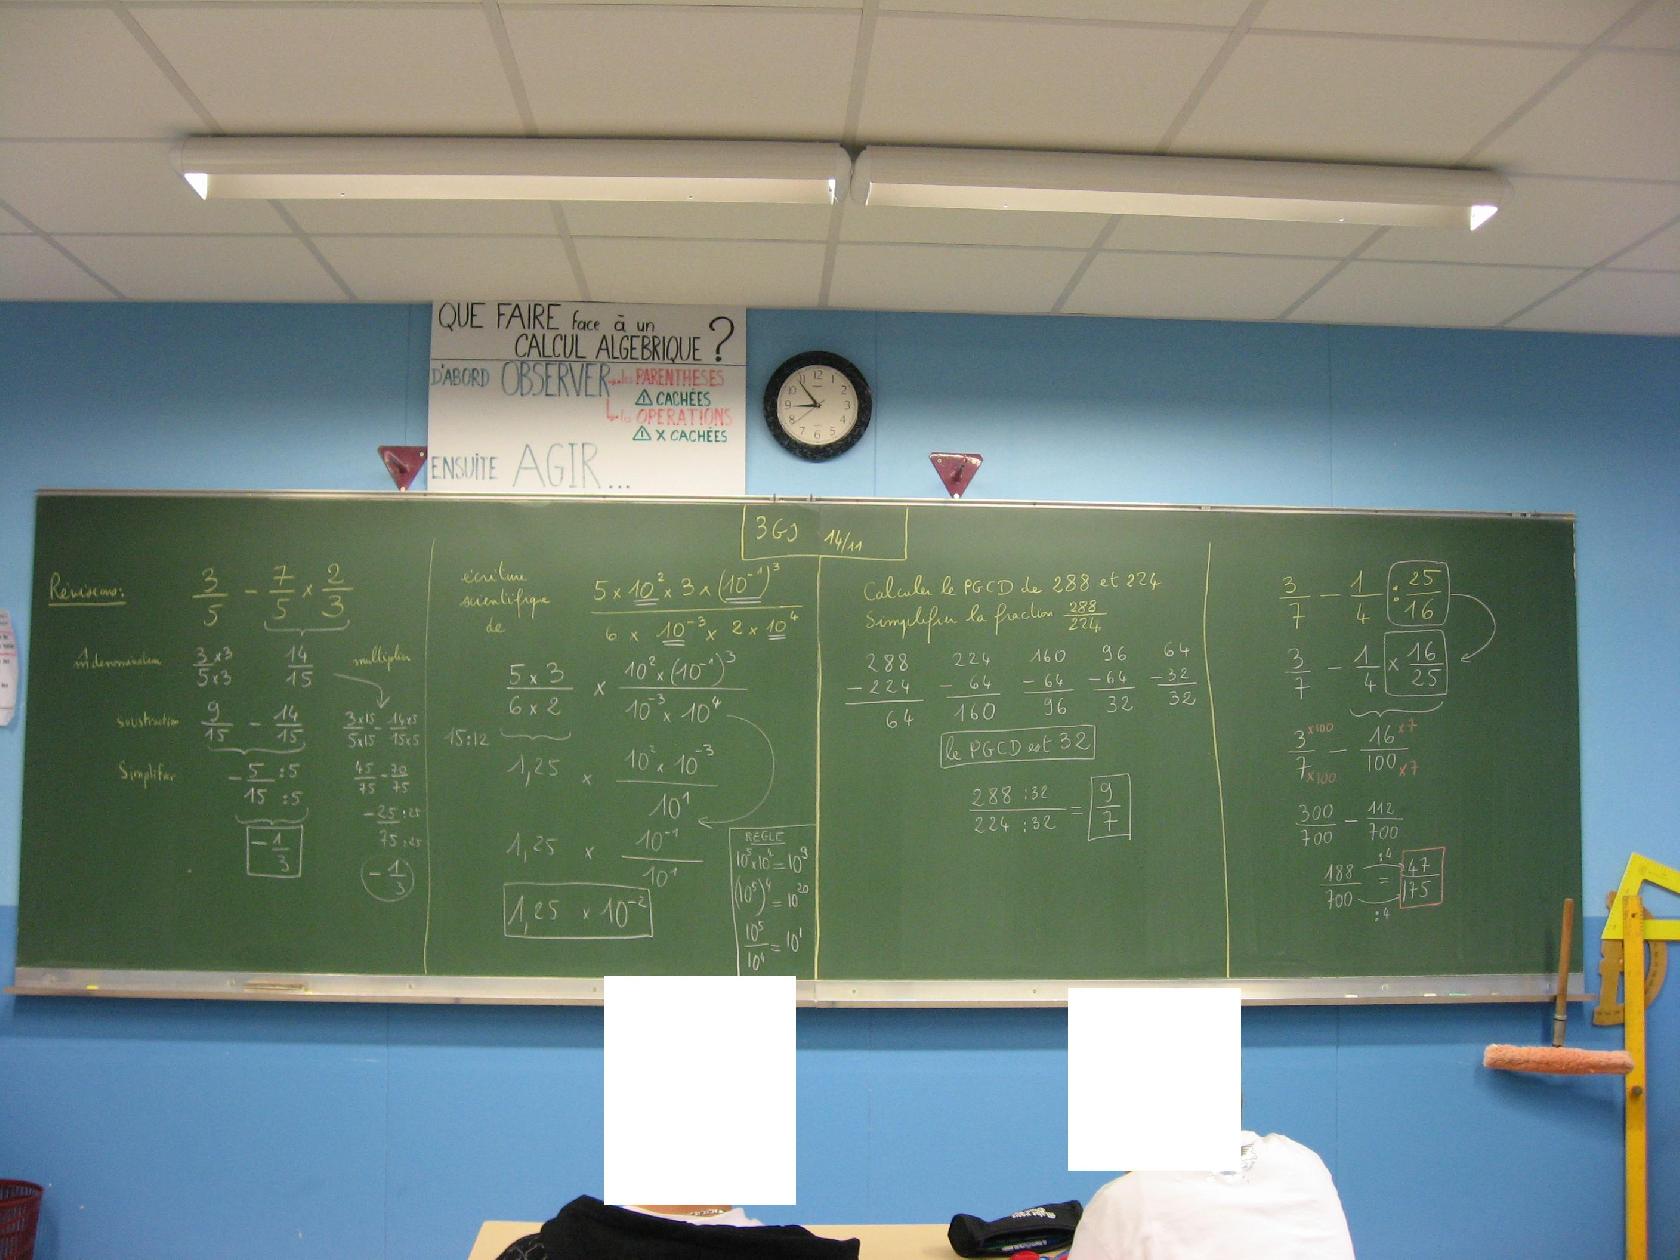 QUE FAIRE face à un
CALCUL ALGEBRIQUE ?
D'ABORD OBSERVER → les PARENTHESES
⚠ CACHÉES
→ les OPERATIONS
⚠ X CACHÉES
ENSUITE AGIR...
12 1 2 3 4 5 6 7 8 9 10 11
3GJ 14/11
Révisions: 3/5 - 7/5 × 2/3
m̂ dénominateur 3×3/5×3 14/15 multiplier
soustraction 9/15 - 14/15
3×15/5×15 - 14×5/15×5
Simplifier -5/15 :5/:5
45/75 - 70/75
-25/75 :25/:25
-1/3
-1/3
écriture
scientifique
de
5 × 10² × 3 × (10⁻¹)³ / 6 × 10⁻³ × 2 × 10⁴
5 × 3 / 6 × 2 × 10² × (10⁻¹)³ / 10⁻³ × 10⁴
15:12
1,25 × 10² × 10⁻³ / 10¹
1,25 × 10⁻¹ / 10¹
1,25 × 10⁻²
REGLE
10⁵ × 10⁴ = 10⁹
(10⁵)⁴ = 10²⁰
10⁵/10⁴ = 10¹
Calculer le PGCD de 288 et 224
Simplifier la fraction 288/224
288 224 160 96 64
- 224 - 64 - 64 - 64 - 32
64 160 96 32 32
le PGCD est 32
288 :32 / 224 :32 = 9/7
3/7 - 1/4 : 25/16
3/7 - 1/4 × 16/25
3×100/7×100 - 16×7/100×7
300/700 - 112/700
188/700 = 47/175
:4
:4